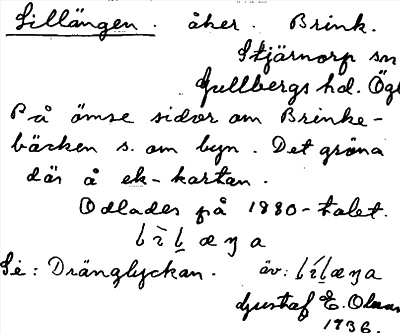 Lillängen. åker. Brink.
Stjärnorp sn
Gullbergs hd. Ögl
På ömse sidor om Brinke-
bäcken s. om byn. Det gröna
där å ek-kartan.
Odlades på 1880-talet.
Se: Dränglyckan. äv:
Gustaf E. Olsson
1936.